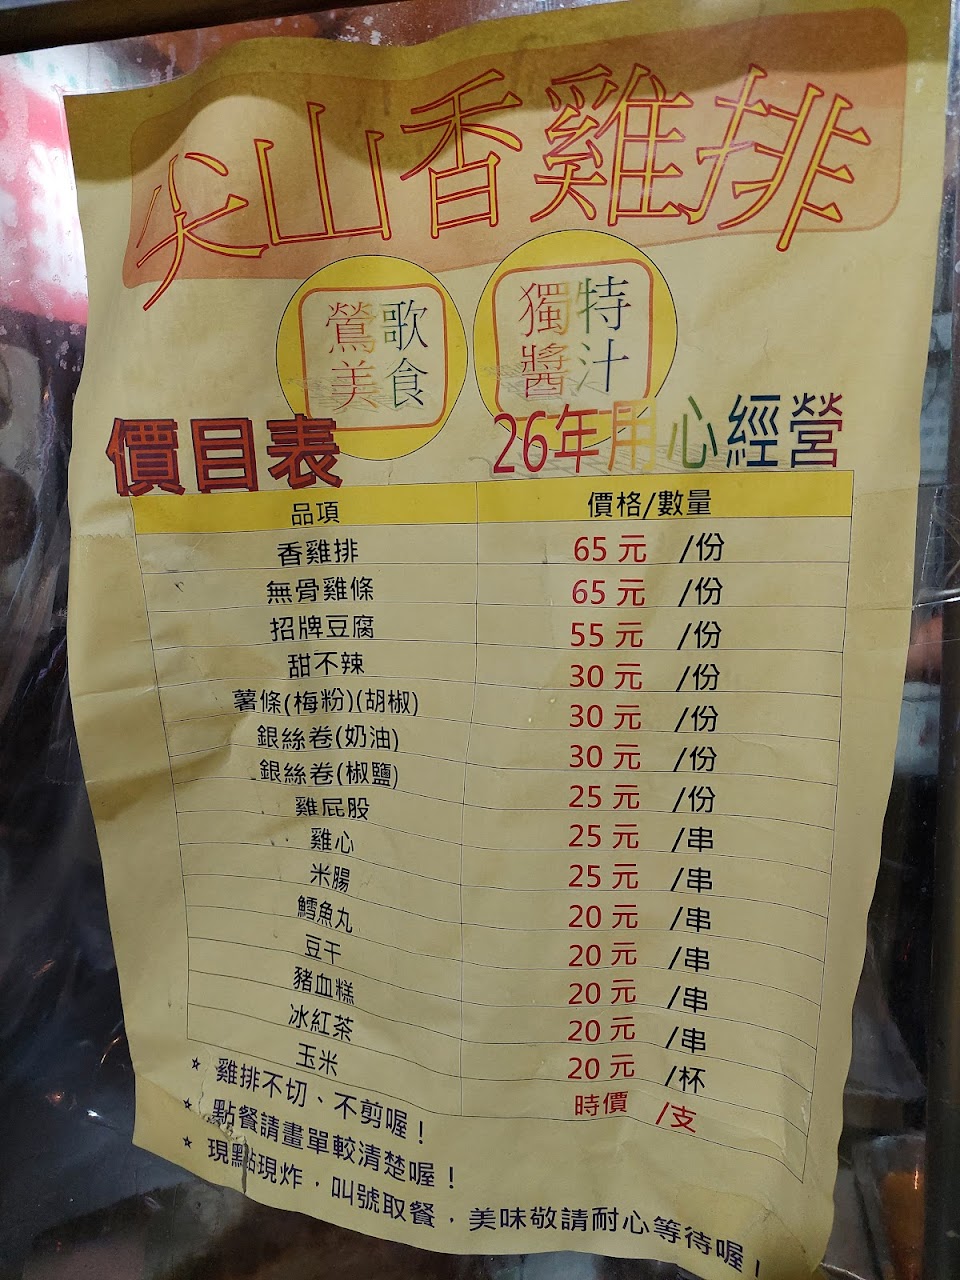 尖山香雞排
鶯歌美食
獨特醬汁
價目表 26年用心經營
品項 價格/數量
香雞排 65 元 /份
無骨雞條 65 元 /份
招牌豆腐 55 元 /份
甜不辣 30 元 /份
薯條(梅粉)(胡椒) 30 元 /份
銀絲卷(奶油) 30 元 /份
銀絲卷(椒鹽) 25 元 /份
雞屁股 25 元 /串
雞心 25 元 /串
米腸 20 元 /串
鱈魚丸 20 元 /串
豆干 20 元 /串
豬血糕 20 元 /串
冰紅茶 20 元 /杯
玉米 時價 /支
★ 雞排不切、不剪喔！
★ 點餐請畫單較清楚喔！
★ 現點現炸，叫號取餐，美味敬請耐心等待喔！